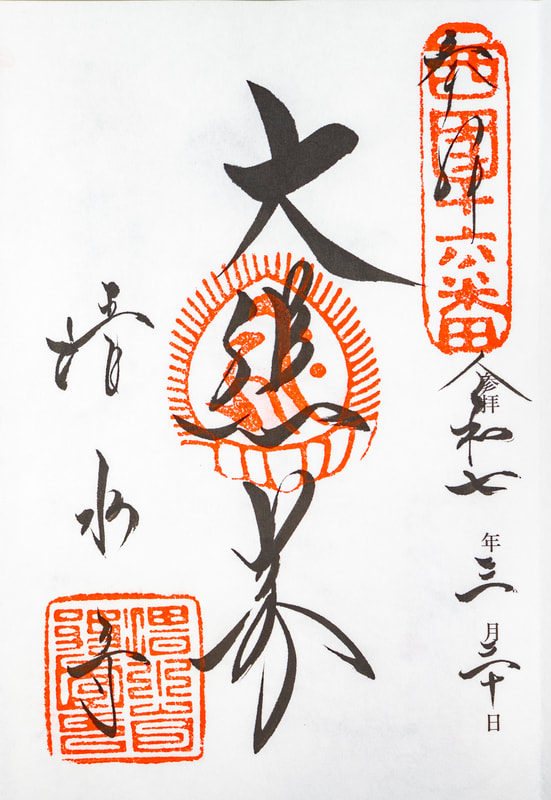 奉拝
西国十六番
参拝
令和七年三月三十日
大悲閣
清水寺